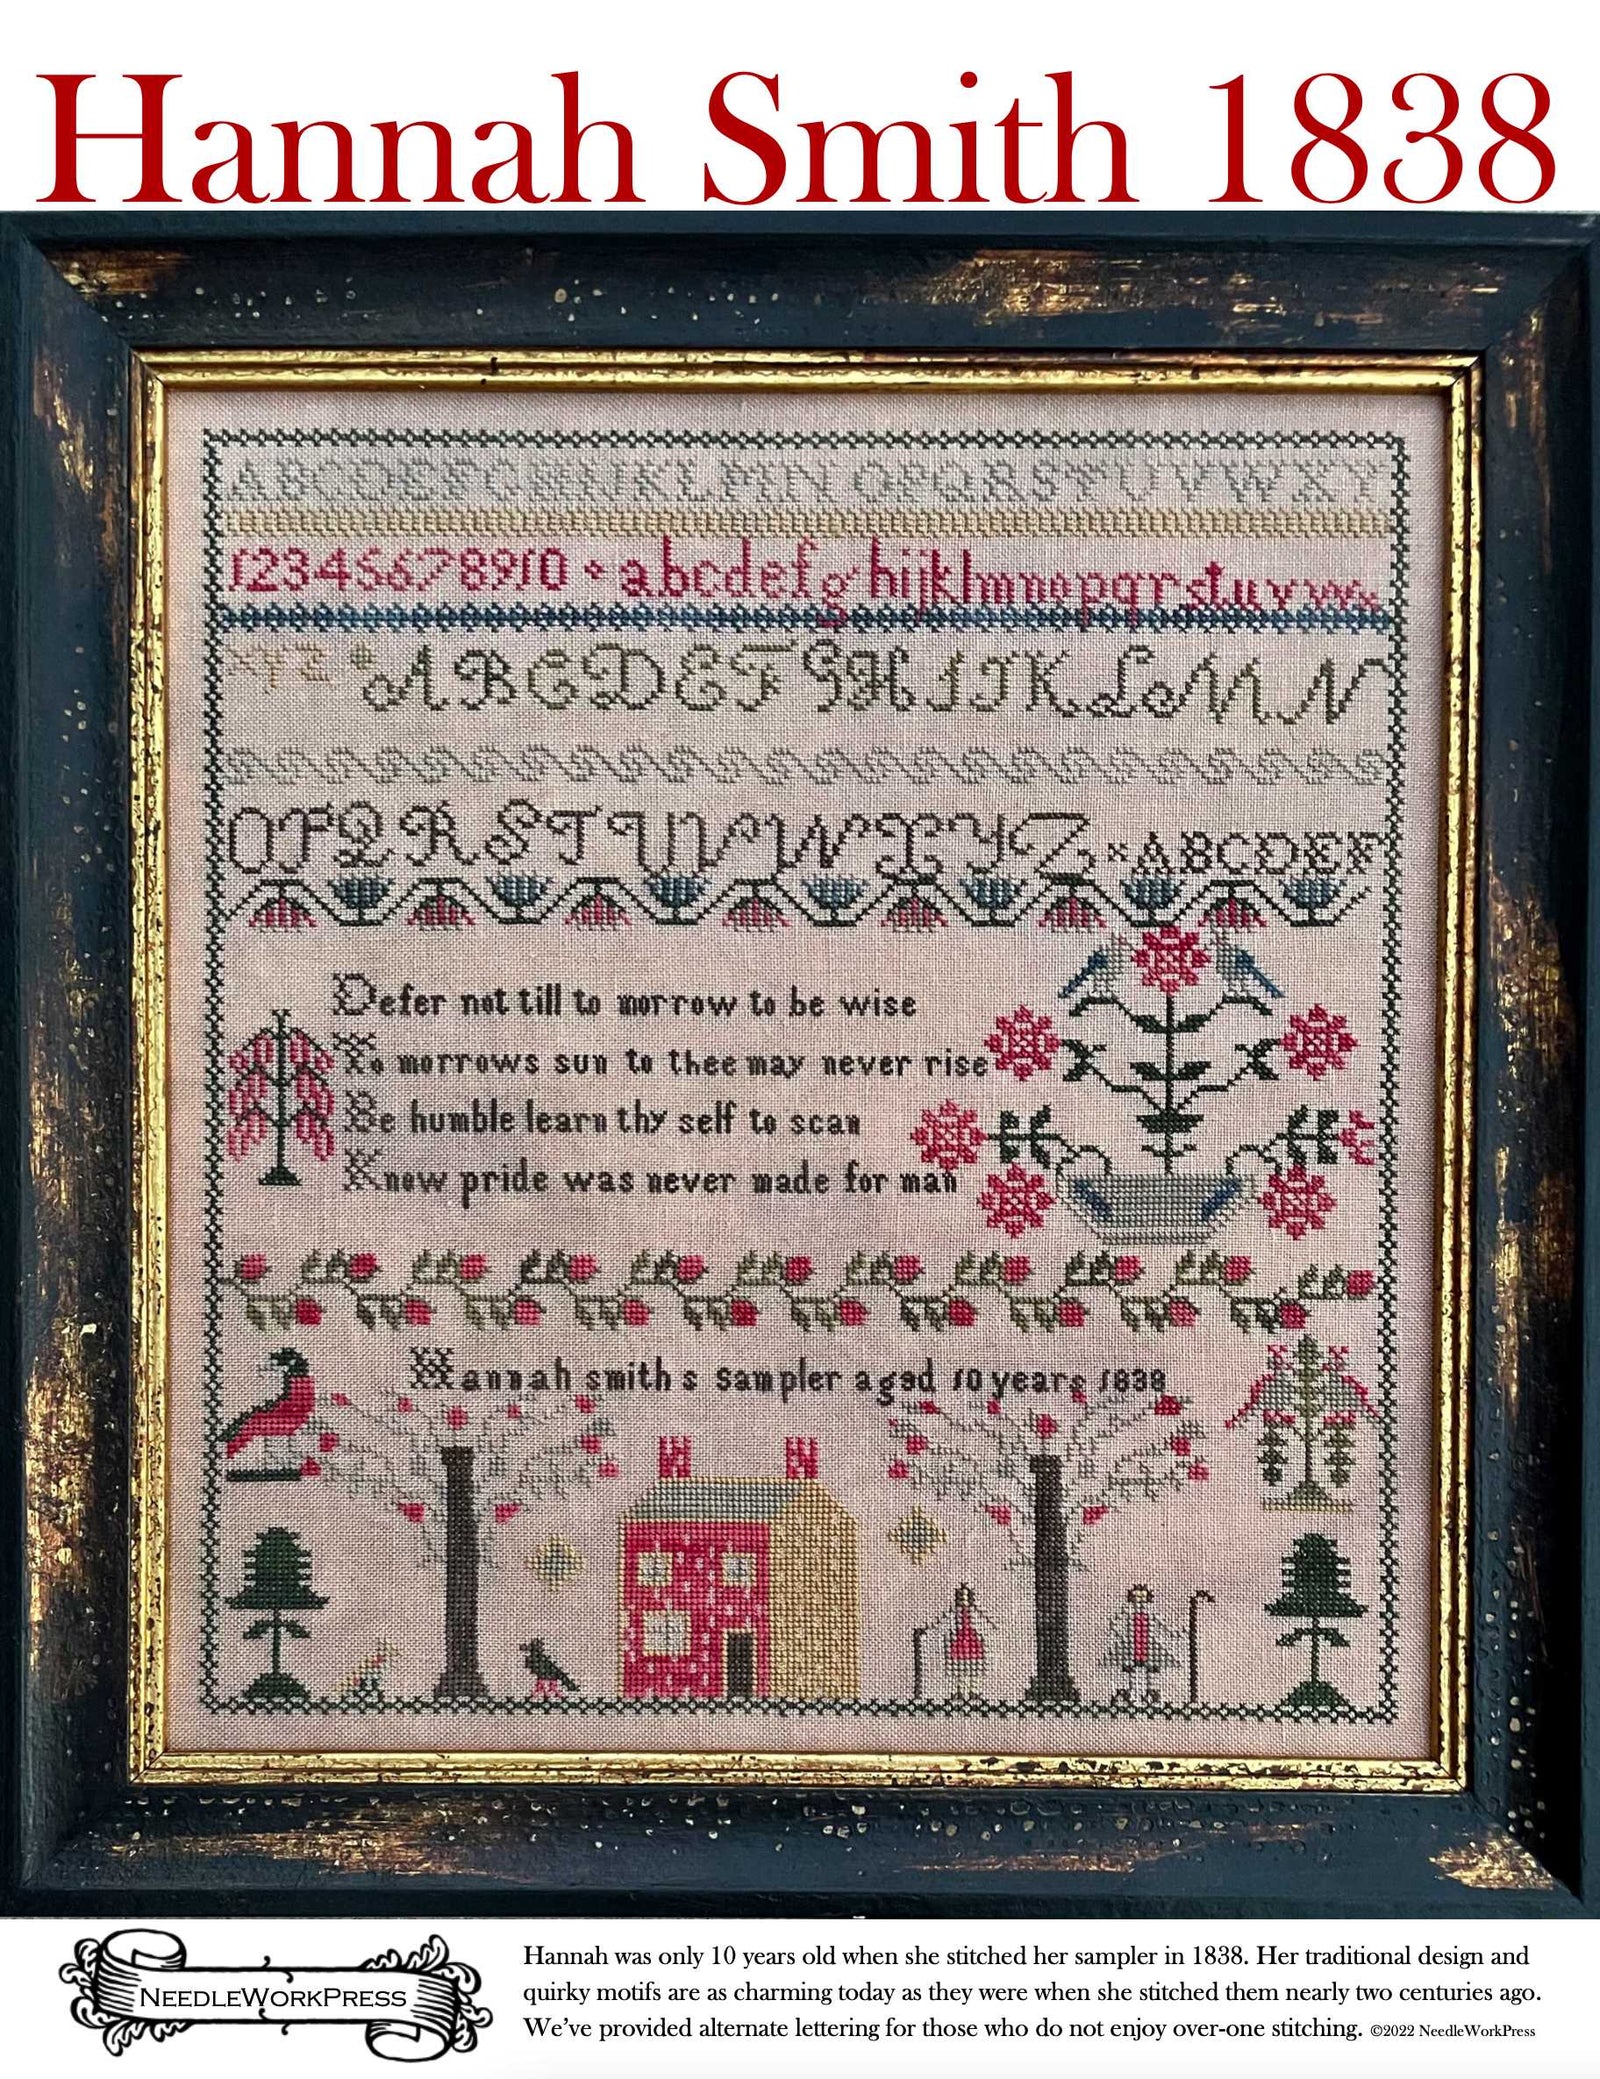 Hannah Smith 1838
ABCDEFGHIJKLMN OPQRSTUVWXY
12345678910 abcdefghijklmnopqrstuvwx
XYZ ABCDEFGHIJKLMN
OPQRSTUVWXYZ ABCDEF
Defer not till to morrow to be wise
To morrows sun to thee may never rise
Be humble learn thy self to scan
Know pride was never made for man
Hannah smith s sampler aged 10 years 1838
NEEDLEWORKPRESS
Hannah was only 10 years old when she stitched her sampler in 1838. Her traditional design and
quirky motifs are as charming today as they were when she stitched them nearly two centuries ago.
We've provided alternate lettering for those who do not enjoy over-one stitching. ©2022 NeedleWorkPress